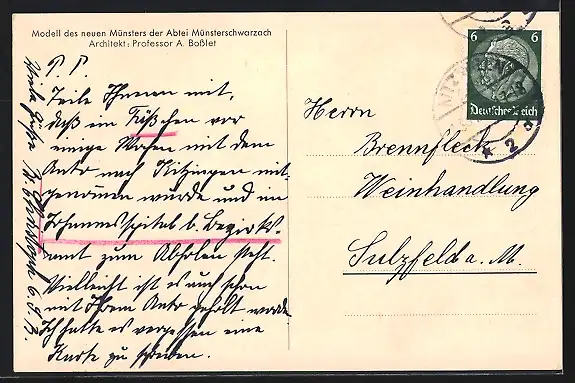 Modell des neuen Münsters der Abtei Münsterschwarzach
Architekt: Professor A. Boßlet
P. P.
Teile Ihnen mit,
daß ein Fäßchen vor
einige Wochen mit dem
Auto nach Kitzingen mit-
genommen wurde und im
Johannesspital b. Bezirks-
amt zum Abholen steht.
Vielleicht ist es auch schon
mit Ihrem Auto geholt worden
Ich hatte es vergessen eine
Karte zu schreiben.
6 6
Deutsches Reich
Herrn
Brennfleck
Weinhandlung
Sulzfeld a. M.